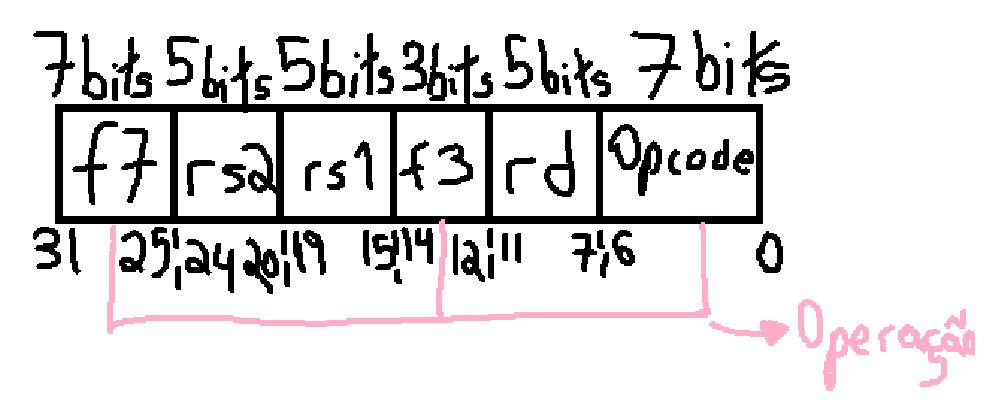 7bits 5bits 5bits 3bits 5bits 7bits
f7 rs2 rs1 f3 rd Opcode
31 25 24 20 19 15 14 12 11 7 6 0
Operação